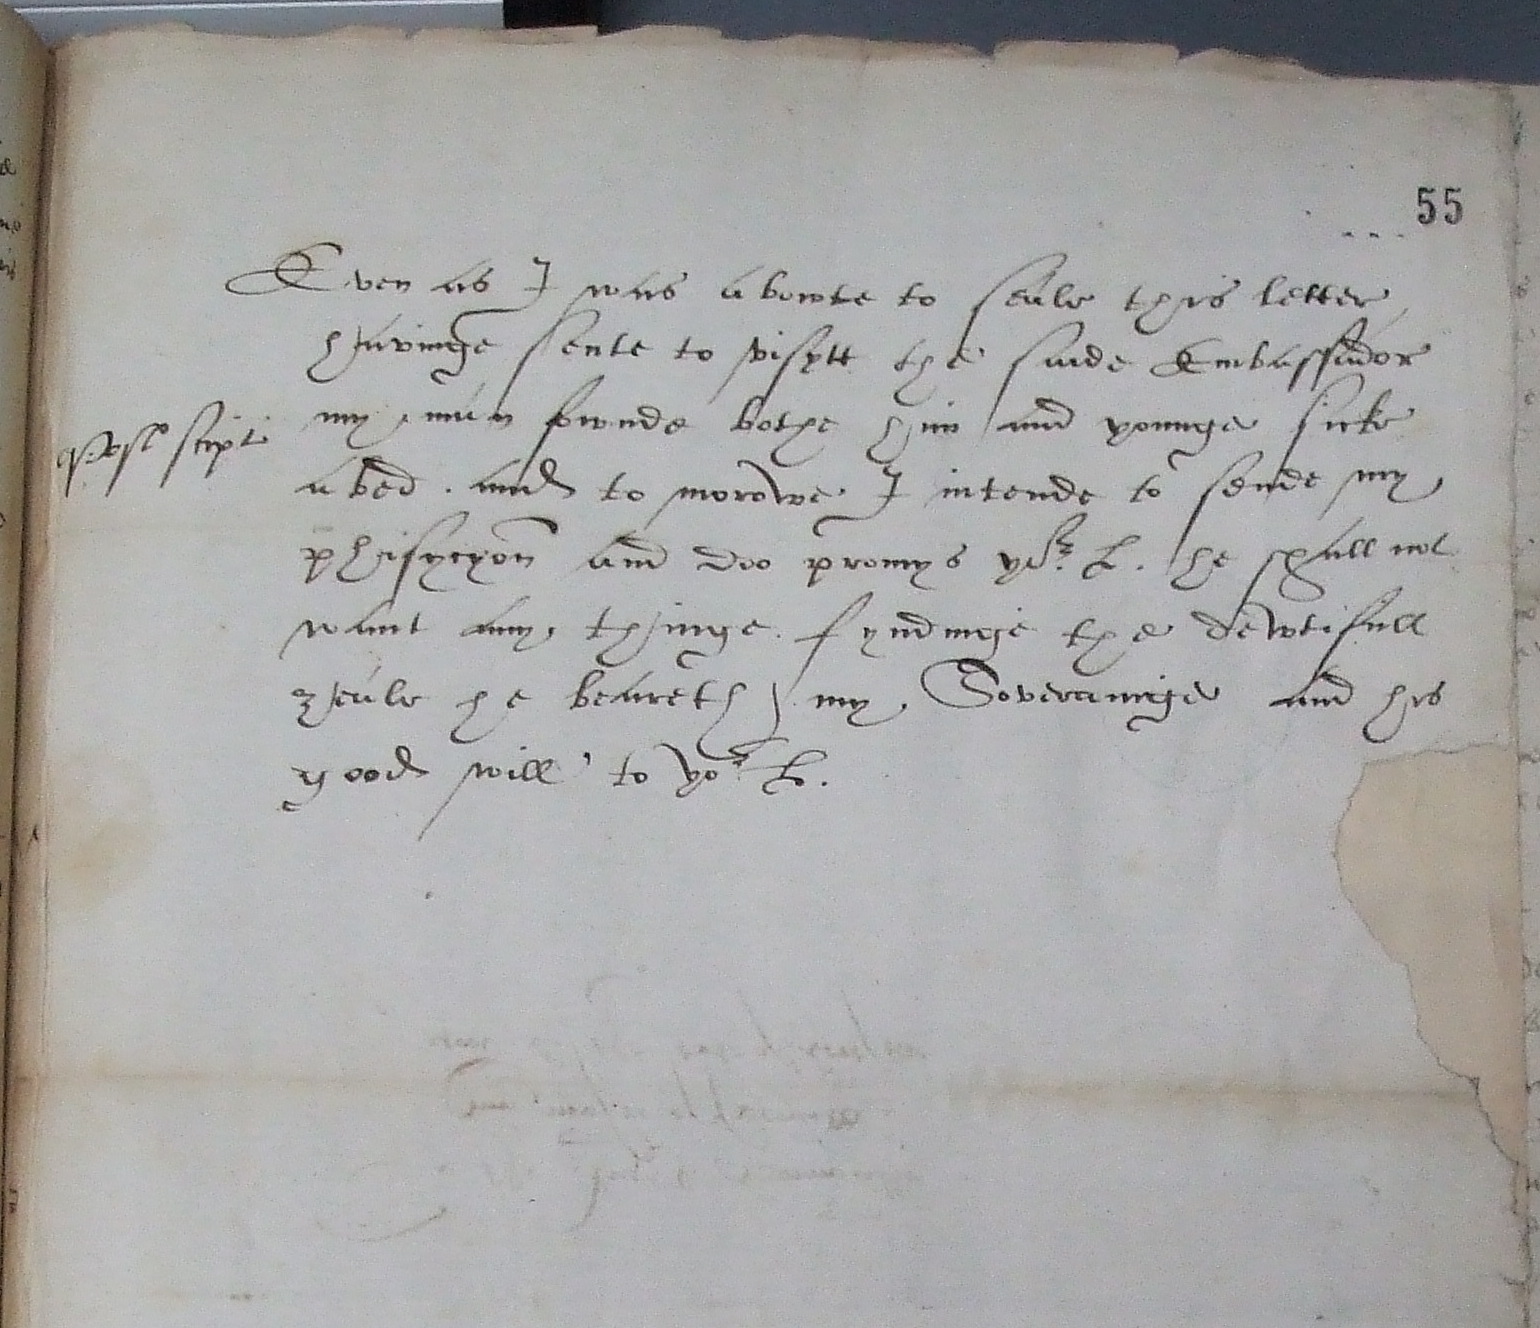 55
Even as I was abowte to seale this letter
havinge sente to visytt the saide Embassador
Post script
my man fownde bothe him and younge sicke
abed. and to morowe I intende to sende my
phisycyon and doo promys yor. L. he shall not
want any thinge. fyndinge the dewtifull
zeale he beareth my Soverainge and his
good will to yor L.